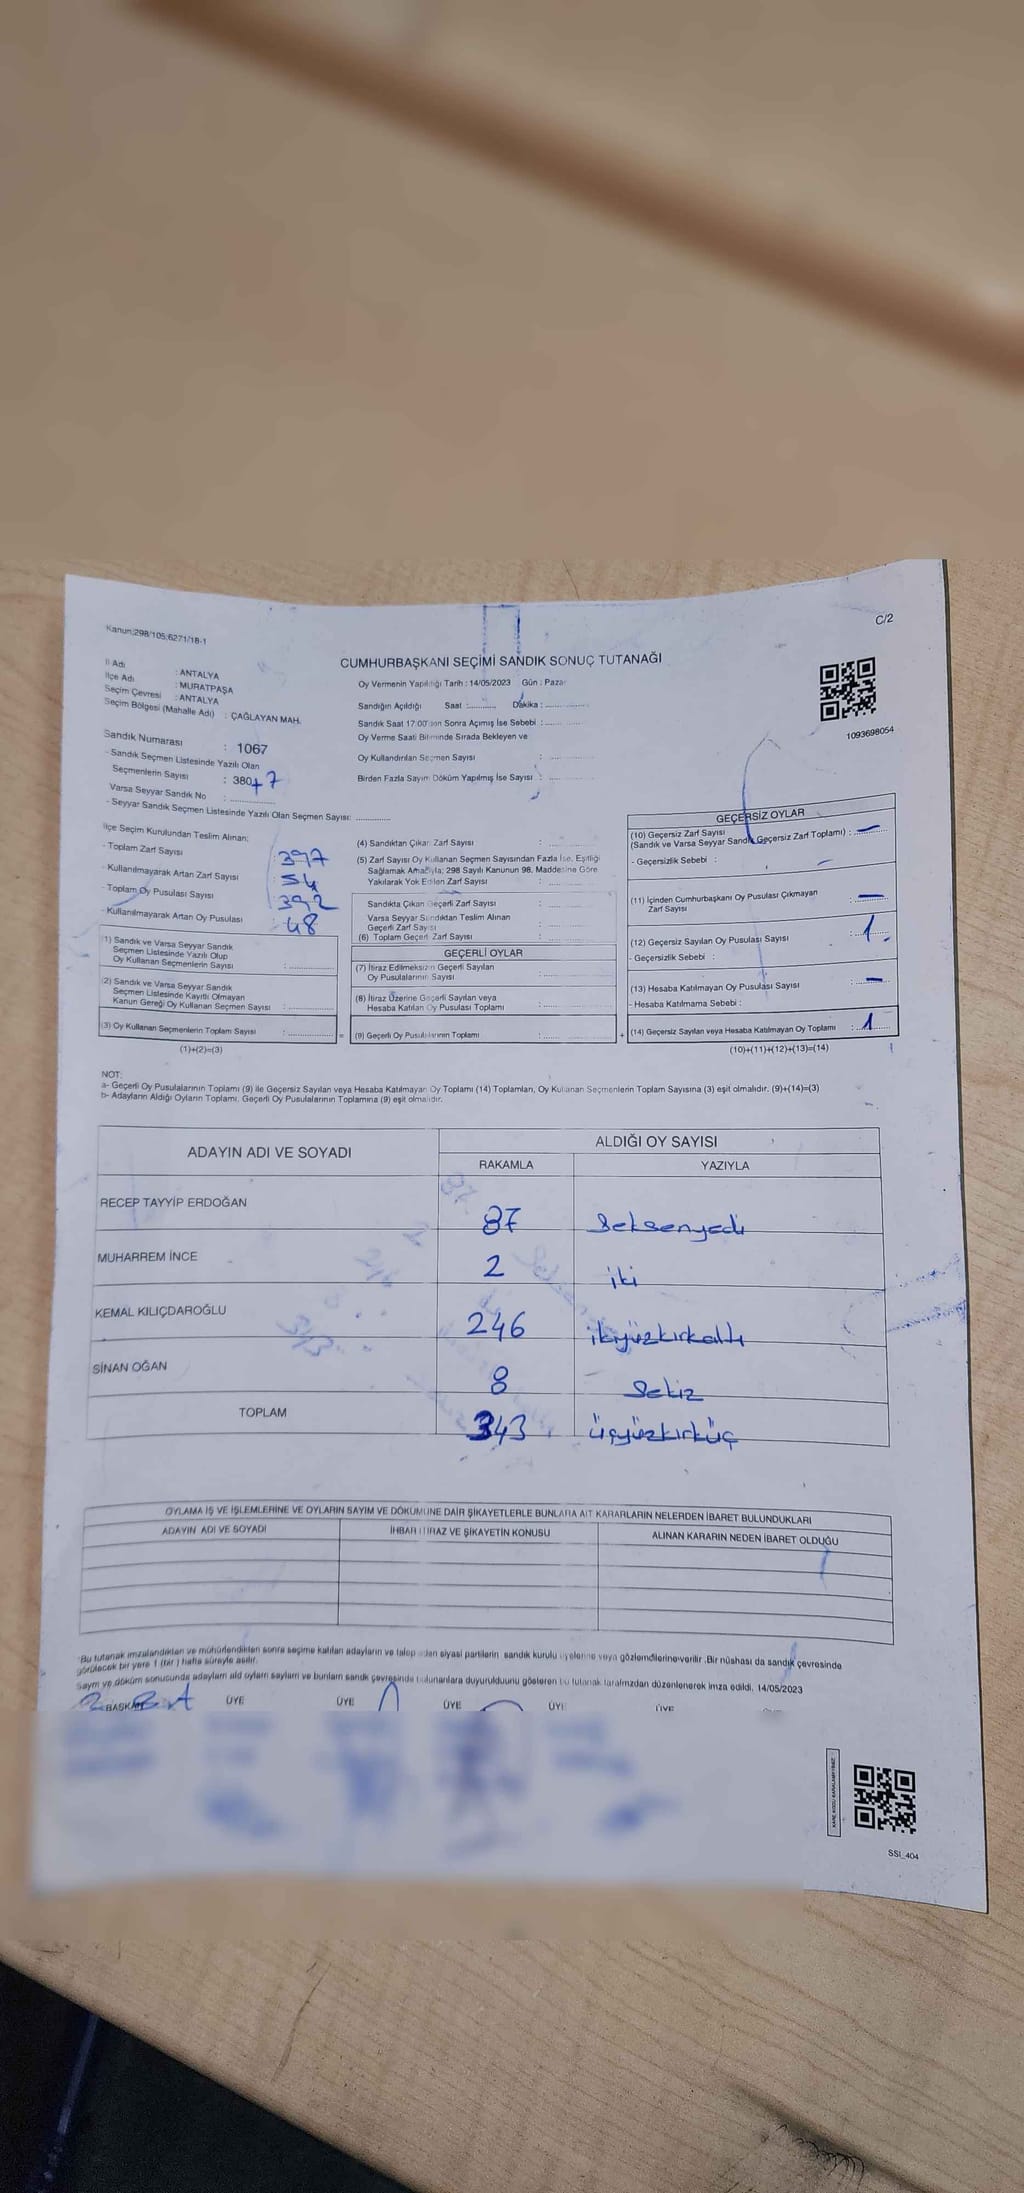 Kanun:298/105;6271/18-1
C/2
İl Adı : ANTALYA
İlçe Adı : MURATPAŞA
Seçim Çevresi : ANTALYA
Seçim Bölgesi (Mahalle Adı) : ÇAĞLAYAN MAH.
CUMHURBAŞKANI SEÇİMİ SANDIK SONUÇ TUTANAĞI
Oy Vermenin Yapıldığı Tarih : 14/05/2023 Gün : Pazar
Sandığın Açıldığı Saat : Dakika :
Sandık Saat 17:00'den Sonra Açmış İse Sebebi :
Oy Verme Saati Bitiminde Sırada Bekleyen ve
Oy Kullandırılan Seçmen Sayısı :
Birden Fazla Sayım Döküm Yapılmış İse Sayısı :
1093698054
Sandık Numarası : 1067
- Sandık Seçmen Listesinde Yazılı Olan
Seçmenlerin Sayısı : 380+7
Varsa Seyyar Sandık No :
- Seyyar Sandık Seçmen Listesinde Yazılı Olan Seçmen Sayısı:
İlçe Seçim Kurulundan Teslim Alınan:
- Toplam Zarf Sayısı : 397
- Kullanılmayarak Artan Zarf Sayısı : 54
- Toplam Oy Pusulası Sayısı : 392
- Kullanılmayarak Artan Oy Pusulası : 48
(1) Sandık ve Varsa Seyyar Sandık
Seçmen Listesinde Yazılı Olup
Oy Kullanan Seçmenlerin Sayısı :
(2) Sandık ve Varsa Seyyar Sandık
Seçmen Listesinde Kayıtlı Olmayan
Kanun Gereği Oy Kullanan Seçmen Sayısı :
(3) Oy Kullanan Seçmenlerin Toplam Sayısı :
(1)+(2)=(3)
(4) Sandıktan Çıkan Zarf Sayısı :
(5) Zarf Sayısı Oy Kullanan Seçmen Sayısından Fazla İse, Eşitliği
Sağlamak Amacıyla; 298 Sayılı Kanunun 98. Maddesine Göre
Yakılarak Yok Edilen Zarf Sayısı :
Sandıkta Çıkan Geçerli Zarf Sayısı :
Varsa Seyyar Sandıktan Teslim Alınan
Geçerli Zarf Sayısı :
(6) Toplam Geçerli Zarf Sayısı :
GEÇERLİ OYLAR
(7) İtiraz Edilmeksizin Geçerli Sayılan
Oy Pusulalarının Sayısı :
(8) İtiraz Üzerine Geçerli Sayılan veya
Hesaba Katılan Oy Pusulası Toplamı :
= (9) Geçerli Oy Pusulalarının Toplamı :
GEÇERSİZ OYLAR
(10) Geçersiz Zarf Sayısı
(Sandık ve Varsa Seyyar Sandık Geçersiz Zarf Toplamı) : —
- Geçersizlik Sebebi :
(11) İçinden Cumhurbaşkanı Oy Pusulası Çıkmayan
Zarf Sayısı : —
(12) Geçersiz Sayılan Oy Pusulası Sayısı : 1
- Geçersizlik Sebebi :
(13) Hesaba Katılmayan Oy Pusulası Sayısı : —
- Hesaba Katılmama Sebebi :
+ (14) Geçersiz Sayılan veya Hesaba Katılmayan Oy Toplamı : 1
(10)+(11)+(12)+(13)=(14)
NOT:
a- Geçerli Oy Pusulalarının Toplamı (9) ile Geçersiz Sayılan veya Hesaba Katılmayan Oy Toplamı (14) Toplamları, Oy Kullanan Seçmenlerin Toplam Sayısına (3) eşit olmalıdır. (9)+(14)=(3)
b- Adayların Aldığı Oyların Toplamı, Geçerli Oy Pusulalarının Toplamına (9) eşit olmalıdır.
ADAYIN ADI VE SOYADI
ALDIĞI OY SAYISI
RAKAMLA YAZIYLA
RECEP TAYYİP ERDOĞAN 87 Seksenyedi
MUHARREM İNCE 2 iki
KEMAL KILIÇDAROĞLU 246 ikiyüzkırkaltı
SİNAN OĞAN 8 Sekiz
TOPLAM 343 üçyüzkırküç
OYLAMA İŞ VE İŞLEMLERİNE VE OYLARIN SAYIM VE DÖKÜMÜNE DAİR ŞİKAYETLERLE BUNLARA AİT KARARLARIN NELERDEN İBARET BULUNDUKLARI
ADAYIN ADI VE SOYADI İHBAR İTİRAZ VE ŞİKAYETİN KONUSU ALINAN KARARIN NEDEN İBARET OLDUĞU
Bu tutanak imzalandıktan ve mühürlendikten sonra seçime katılan adayların ve talep eden siyasi partilerin sandık kurulu üyelerine veya gözlemcilerine verilir. Bir nüshası da sandık çevresinde
görülecek bir yere 1 (bir) hafta süreyle asılır.
Sayım ve döküm sonucunda adayların aldığı oyların sayıları ve bunların sandık çevresinde bulunanlara duyurulduğunu gösteren bu tutanak tarafımızdan düzenlenerek imza edildi. 14/05/2023
BAŞKAN ÜYE ÜYE ÜYE ÜYE ÜYE
SSI_404